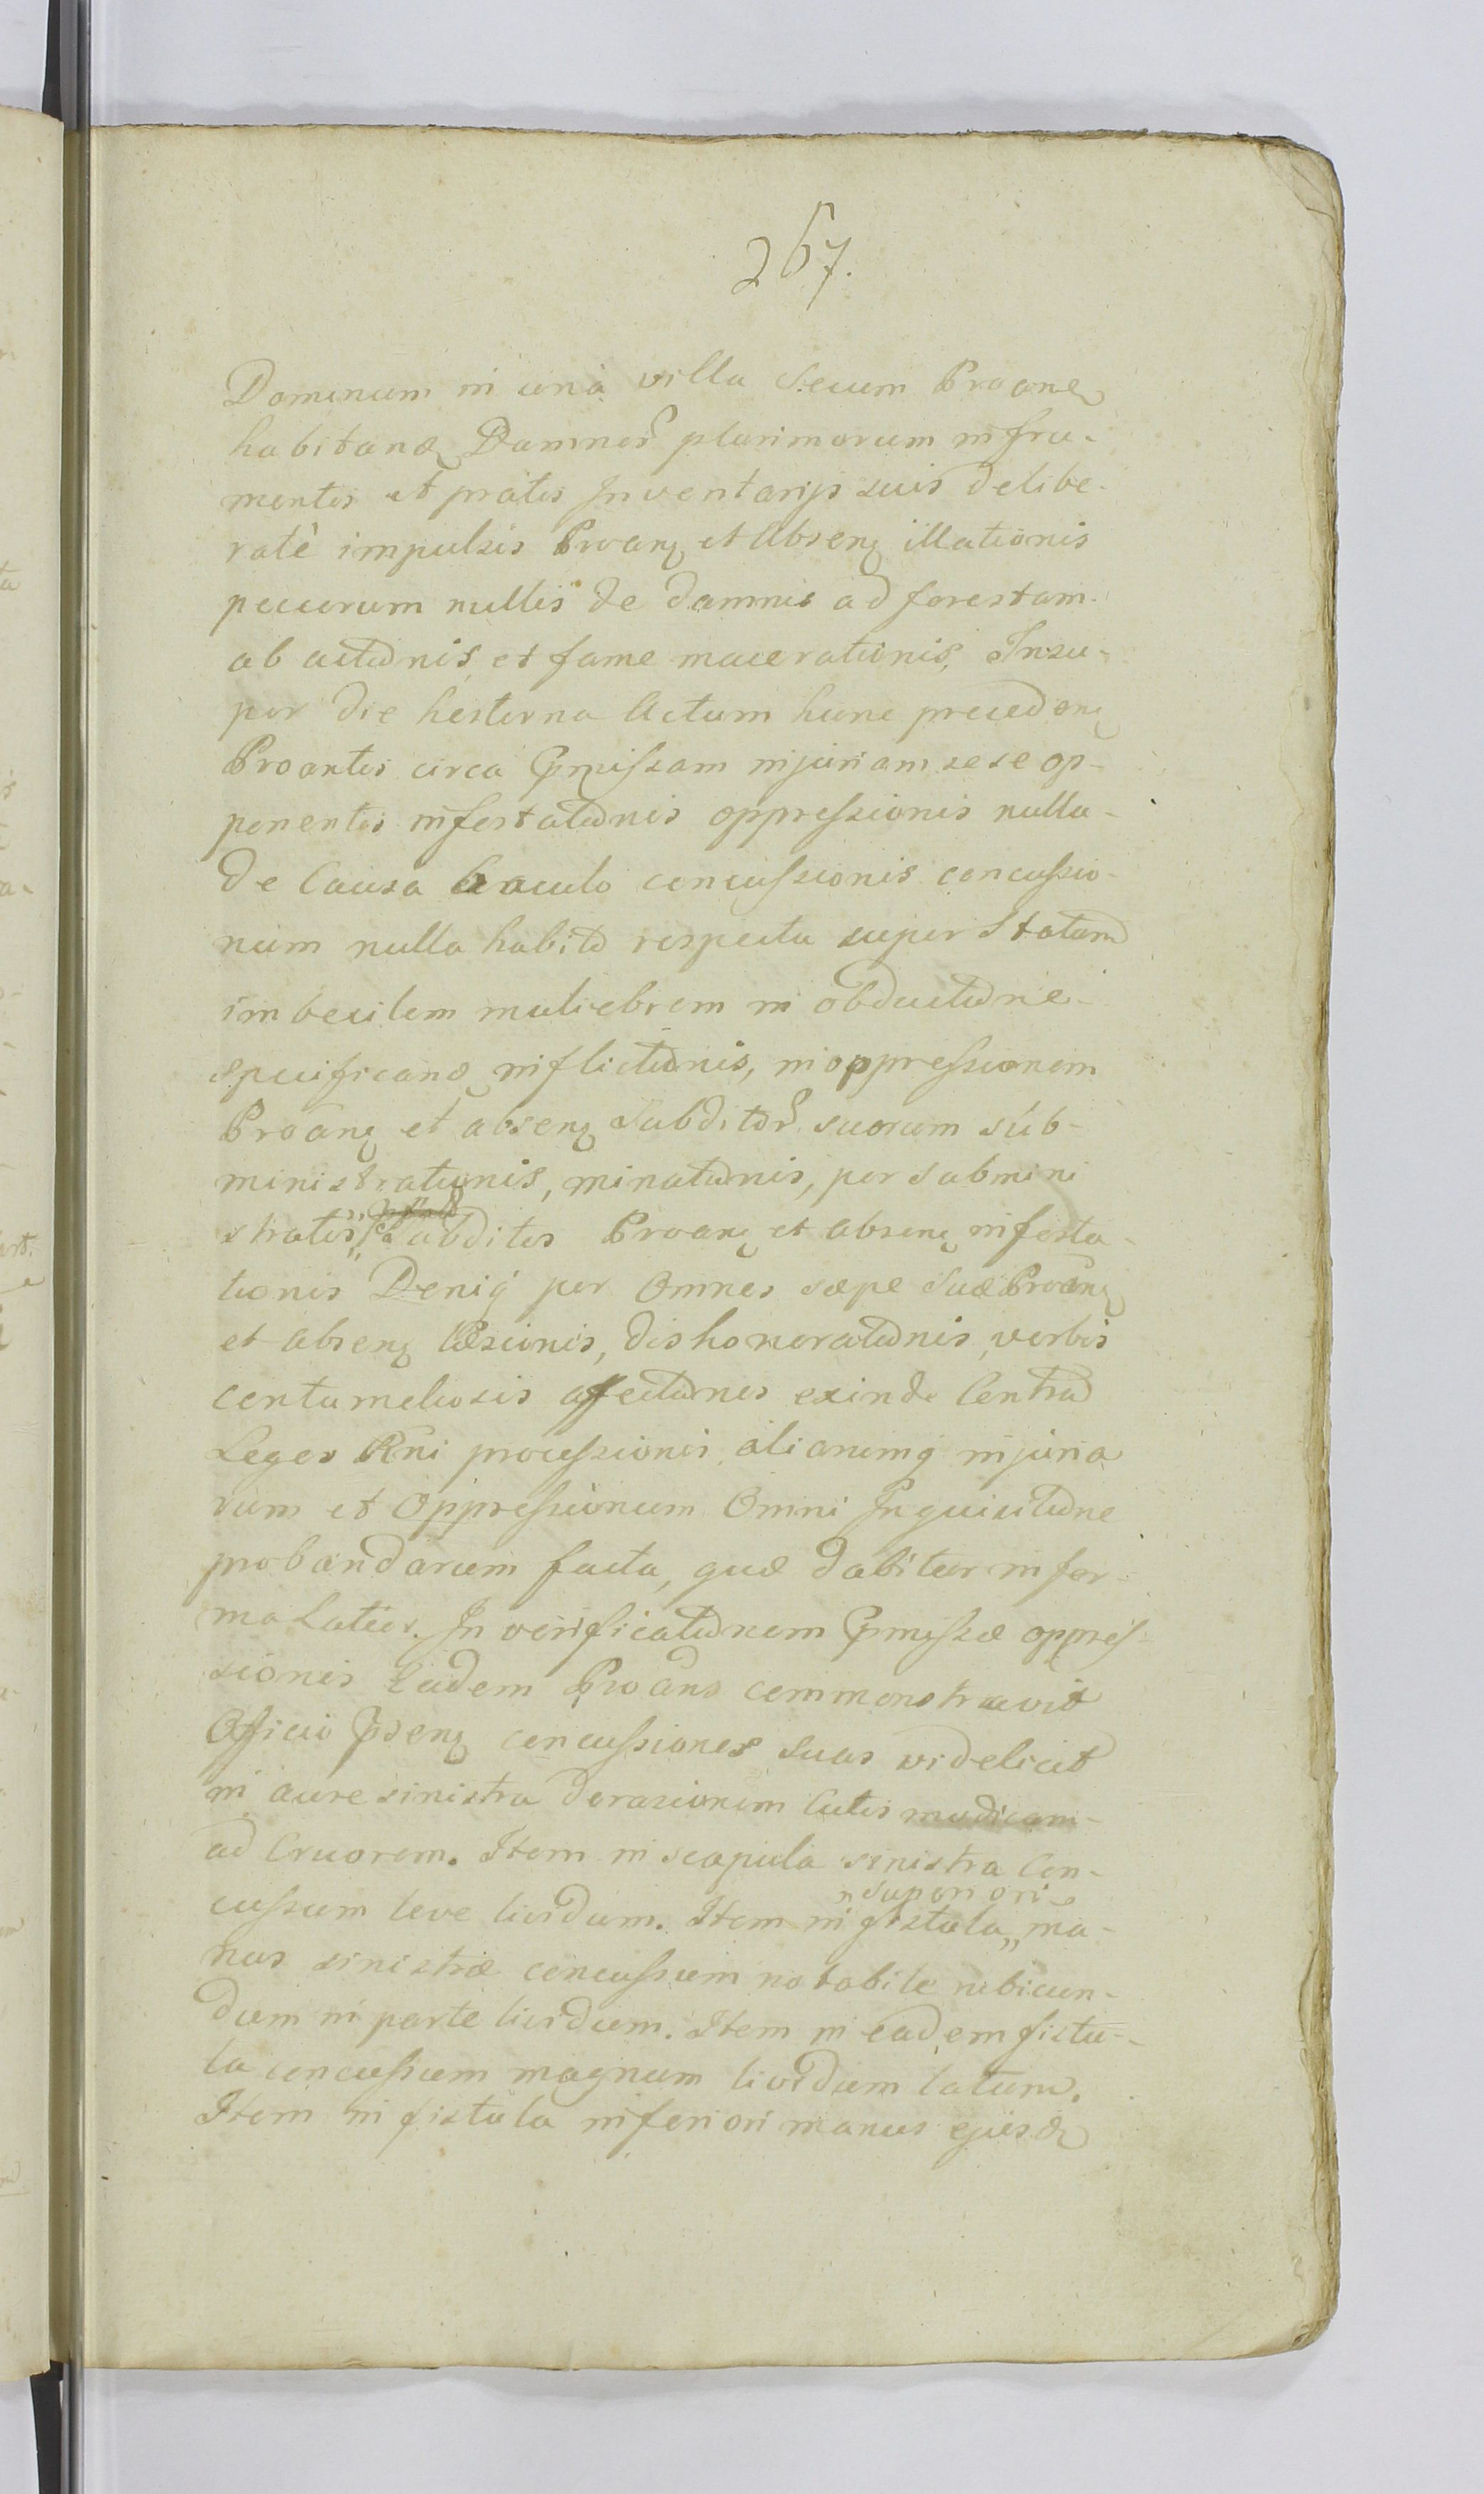 267.
Dominum in una villa secum Proane
habitanđ Damnor plurimorum in fru-
mentis et pratis Inventarijs suis delibe-
ratè impulsis Proanę et Absenę illationis
pecorum nullis de damnis ad forestam
abactionis, et fame macerationis, Insu-
per die hesterna Actum hunc precedenę
Proantis circa Pmissam injuriam sese op-
ponentis infestationis oppressionis nulla
de Causa baculo concussionis concussio-
num nullo habito respectu super Statum
imbecilem muliebrem in obductione
specificanđ inflictionis, in oppressionem
Proanę et absenę Subditor suorum sub-
ministrationis, minationis, per submini
stratos Subditos Proanę et absenę infesta-
tionis Deniq per Omnes sæpe suæ Proanę
et absenę læsionis, dishonorationis verbis
contumeliosis affectionis exinde Contra
Leges Rni processionis, aliarumq injuria
rum et Oppressionum Omni Inquisitione
probandarum facta, quæ dabitur in for-
ma Latior. In verificationem Pmissæ oppres-
sionis Eadem Proans commonstravit
Officio Psenę concussiones suas videlicet
in aure sinistra derasionem Cutis modicam
ad Cruorem. Item in scapula sinistra Con-
cussum leve lividum. Item in fistula „ ma-
„ superiori
nus sinistræ concussum notabile rubicun-
dum in parte lividum. Item in eadem fistu-
la concussum magnum lividum latum.
Item in fistula inferiori manus ejusđ